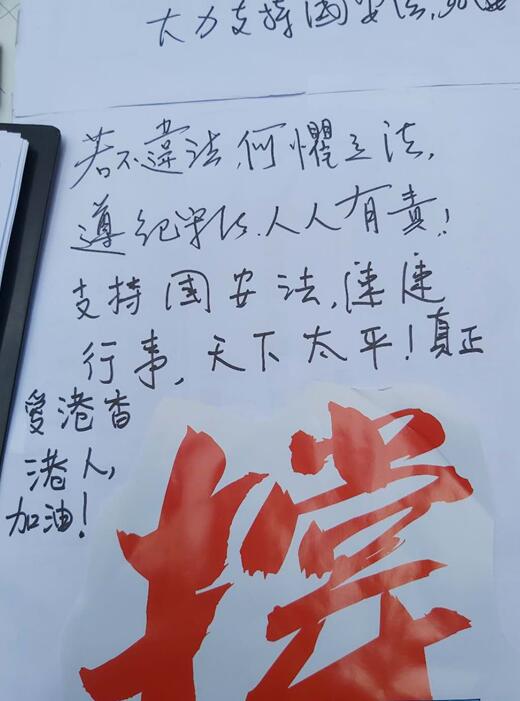 大力支持国安法,
若不違法,何懼立法,
遵纪守法.人人有責!
支持国安法,速速
行事,天下太平!真正
爱港香
港人,
加油!
撐